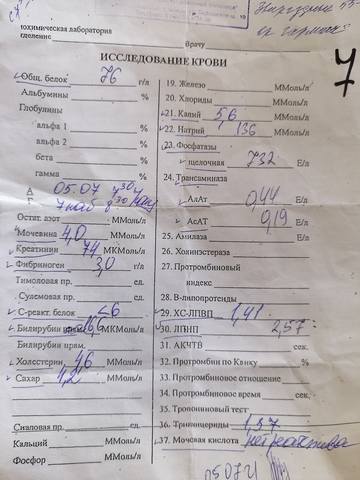 биохимическая лаборатория
отделение
Врачу
ИССЛЕДОВАНИЕ КРОВИ
Общ. белок 76 г/л
Альбумины %
Глобулины
альфа 1 %
альфа 2 %
бета %
гамма %
05.07
Остат. азот ММоль/л
Мочевина 4,0 ММоль/л
Креатинин 74 МКМоль/л
Фибриноген 3,0 г/л
Тимоловая пр. ед.
Сулемовая пр. ед.
С-реакт. белок <6
Билирубин МКМоль/л
Билирубин прям.
Холестерин 4,6 ММоль/л
Сахар 4,2 ММоль/л
Сиаловая пр. ед.
Кальций ММоль/л
Фосфор ММоль/л
19. Железо ММоль/л
20. Хлориды ММоль/л
21. Калий 5,6 ММоль/л
22. Натрий 136 ММоль/л
23. Фосфатазы
щелочная 732 Е/л
24. Трансаминаза
АлАТ 0,44 Е/л
АсАТ 0,19 Е/л
25. Амилаза Е/л
26. Холинэстераза
27. Протромбиновый
индекс
28. В-липопротеиды
29. ХС-ЛПВП 1,41
30. ЛПНП 2,57
31. АКЧТВ сек.
32. Протромбин по Квику %
33. Протромбиновое отношение
34. Протромбиновое время сек.
35. Тропониновый тест
36. Триглицериды 1,37
37. Мочевая кислота нет реактива